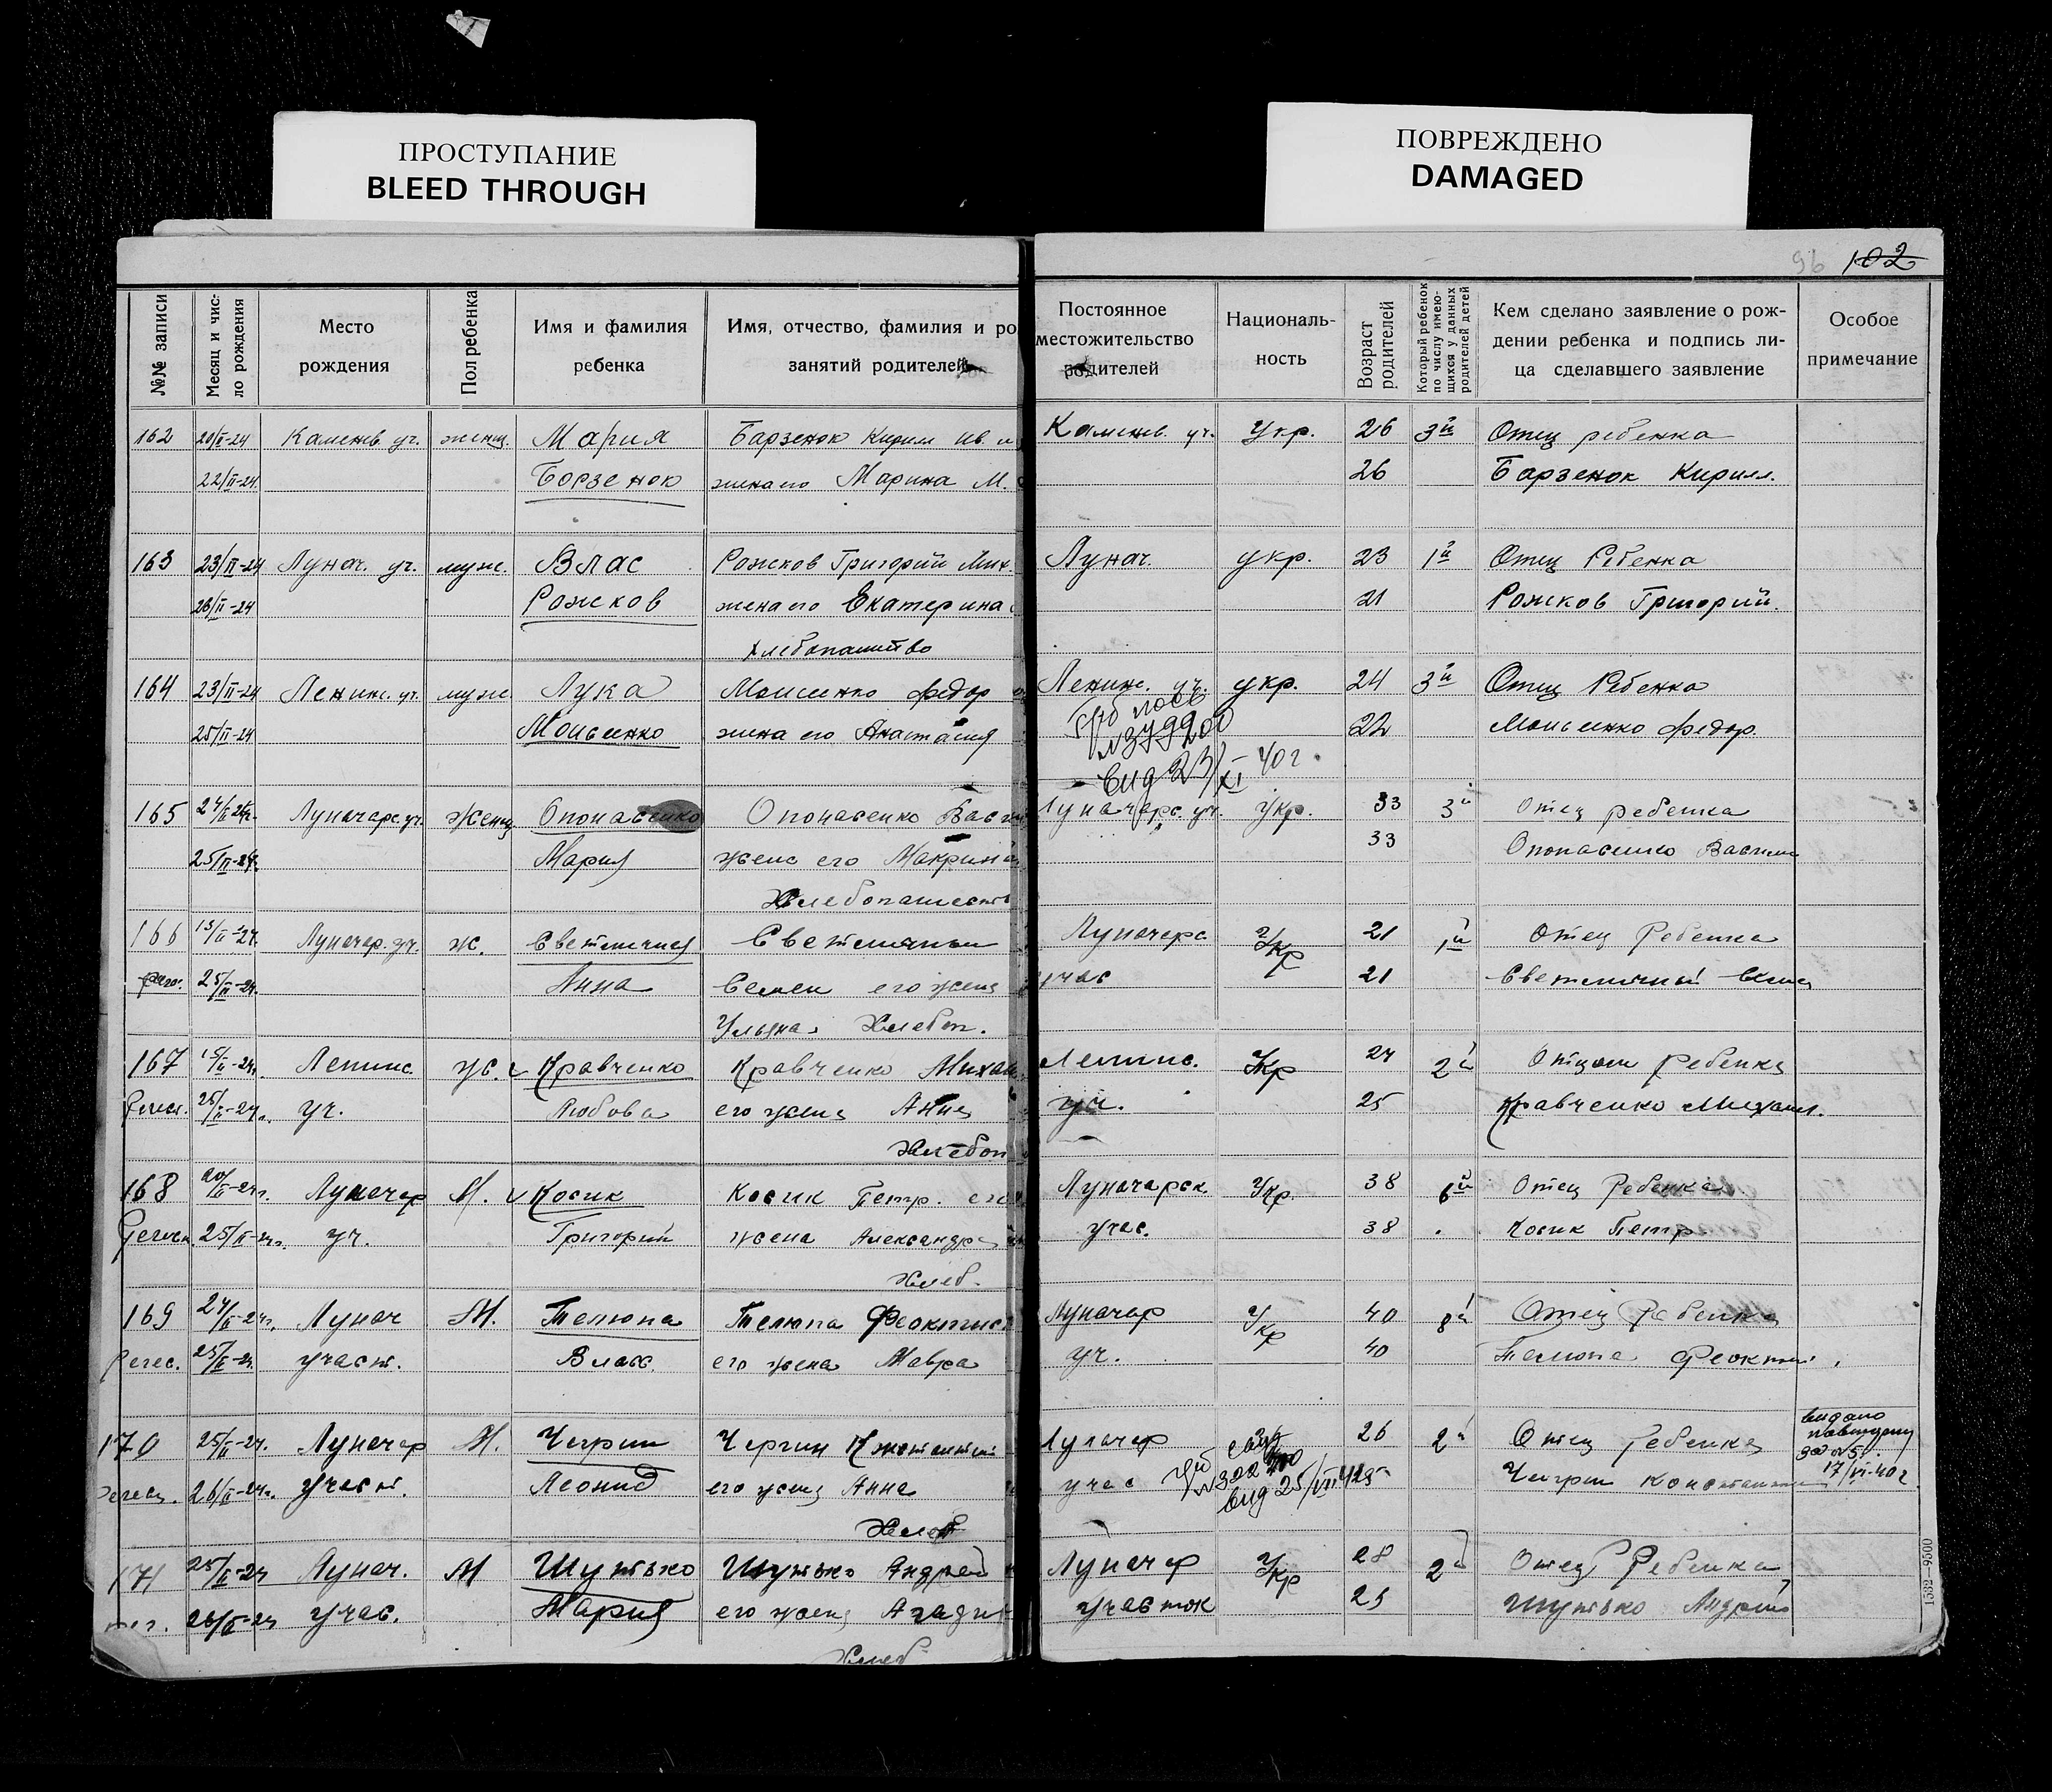 ПРОСТУПАНИЕ
BLEED THROUGH
ПОВРЕЖДЕНО
DAMAGED
96 102
№№ записи
Месяц и чис-
ло рождения
Место
рождения
Пол ребенка
Имя и фамилия
ребенка
Имя, отчество, фамилия и ро
занятий родителей
Постоянное
местожительство
родителей
Националь-
ность
Возраст
родителей
Который ребенок
по числу имею-
щихся у данных
родителей детей
Кем сделано заявление о рож-
дении ребенка и подпись ли-
ца сделавшего заявление
Особое
примечание
162 20/II-24 Каменв. уч. женщ. Мария Барзенок Кирил Ив. и Каменв. уч. Укр. 26 3й Отец ребенка
22/II-24 Борзенок жена его Марина М. 26 Барзенок Кирилл.
163 23/II-24 Лунач. уч. муж. Влас Рожков Григорий Мих. Лунач. укр. 23 1й Отец Ребенка
26/II-24 Рожков жена его Екатерина 21 Рожков Григорий.
хлебопашство
164 23/II-24 Ленинс. уч. муж. Лука Моисенко Федор Ленинс. уч. укр. 24 3й Отец Ребенка
25/II-24 Моисенко жена его Анастасия 22 Моисенко Федор.
№379200
вид 23/XI 40г.
165 24/II-24г. Луначарс. уч. Женщ Опонасенко Опонасенко Васи Луначарс. уч. Укр. 33 3й Отец ребенка
25/II-24г. Мария жена его Макрина 33 Опонасенко Васили
Хлебопашеств
166 13/II-24. Луначар. уч. ж. Светличная Светличный Луначарс Укр 21 1й Отец Ребенка
25/II-24. Анна Семен его жена учас 21 Светличный Семен
Ульяна. Хлебоп.
167 15/II-24г. Ленинс. Ж. Кравченко Кравченко Михаи Ленинс. Укр 24 2й Отцом ребенка
25/II-24г. уч. Любовь его жена Анна уч. 25 Кравченко Михаил.
Хлебоп
168 20/II-24г. Луначар М. Косик Косик Петр. его Луначарск. Укр 38 6й Отец Ребенка
25/II-24г. уч. Григорий жена Александра учас. 38 Косик Петр
Хлеб.
169 24/II-24г. Лунач М. Телюпа Телюпа Феоктист Луначар Укр 40 8й Отец Ребенка
25/II-24 участ. Влас. его жена Мавра уч. 40 Телюпа Феоктис.
170 25/II-24. Луначар М. Чегрин Чегрин Константин Луначар 26 2й Отец Ребенка
26/II-24г. участ. Леонид его жена Анна учас Чигрин Константин
№302200
вид 25/VII 42г
17/VI-40г
Хлеб
171 25/II-24 Лунач. М Шутько Шутько Андрей Луначар Укр 28 2й Отец Ребенка
26/II-24 учас. Мария его жена участок 25 Шутько Андрей
Хлеб
1389—9500